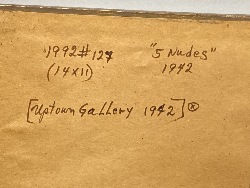 1992#127 "5 Nudes"
(14x11) 1942
[Uptown Gallery 1942]®